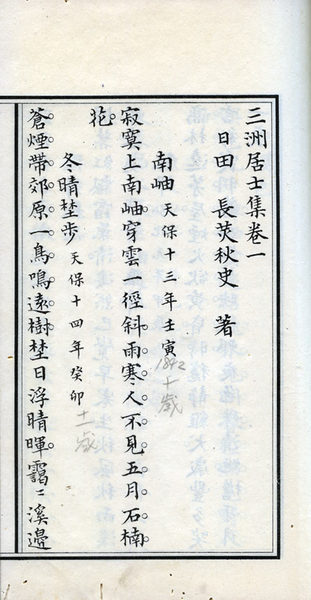 三洲居士集卷一
日田 長炗秋史 著
南岫 天保十三年壬寅
1842 十歳
寂寞上南岫穿雲一徑斜雨寒人不見五月石楠
花
冬晴埜步 天保十四年癸卯
十一歳
蒼煙帶郊原一鳥鳴遠樹埜日浮晴暉靄〻溪邊